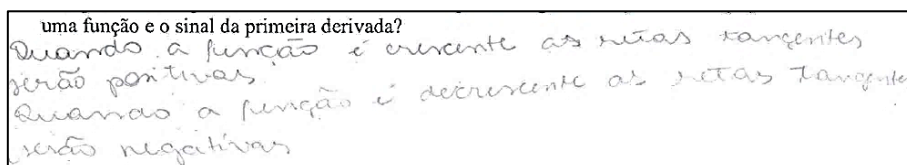 uma função e o sinal da primeira derivada?
Quando a função é crescente as retas tangentes
serão positivas
Quando a função é decrescente as retas tangente
serão negativas